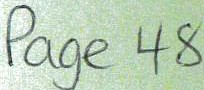 Page 48